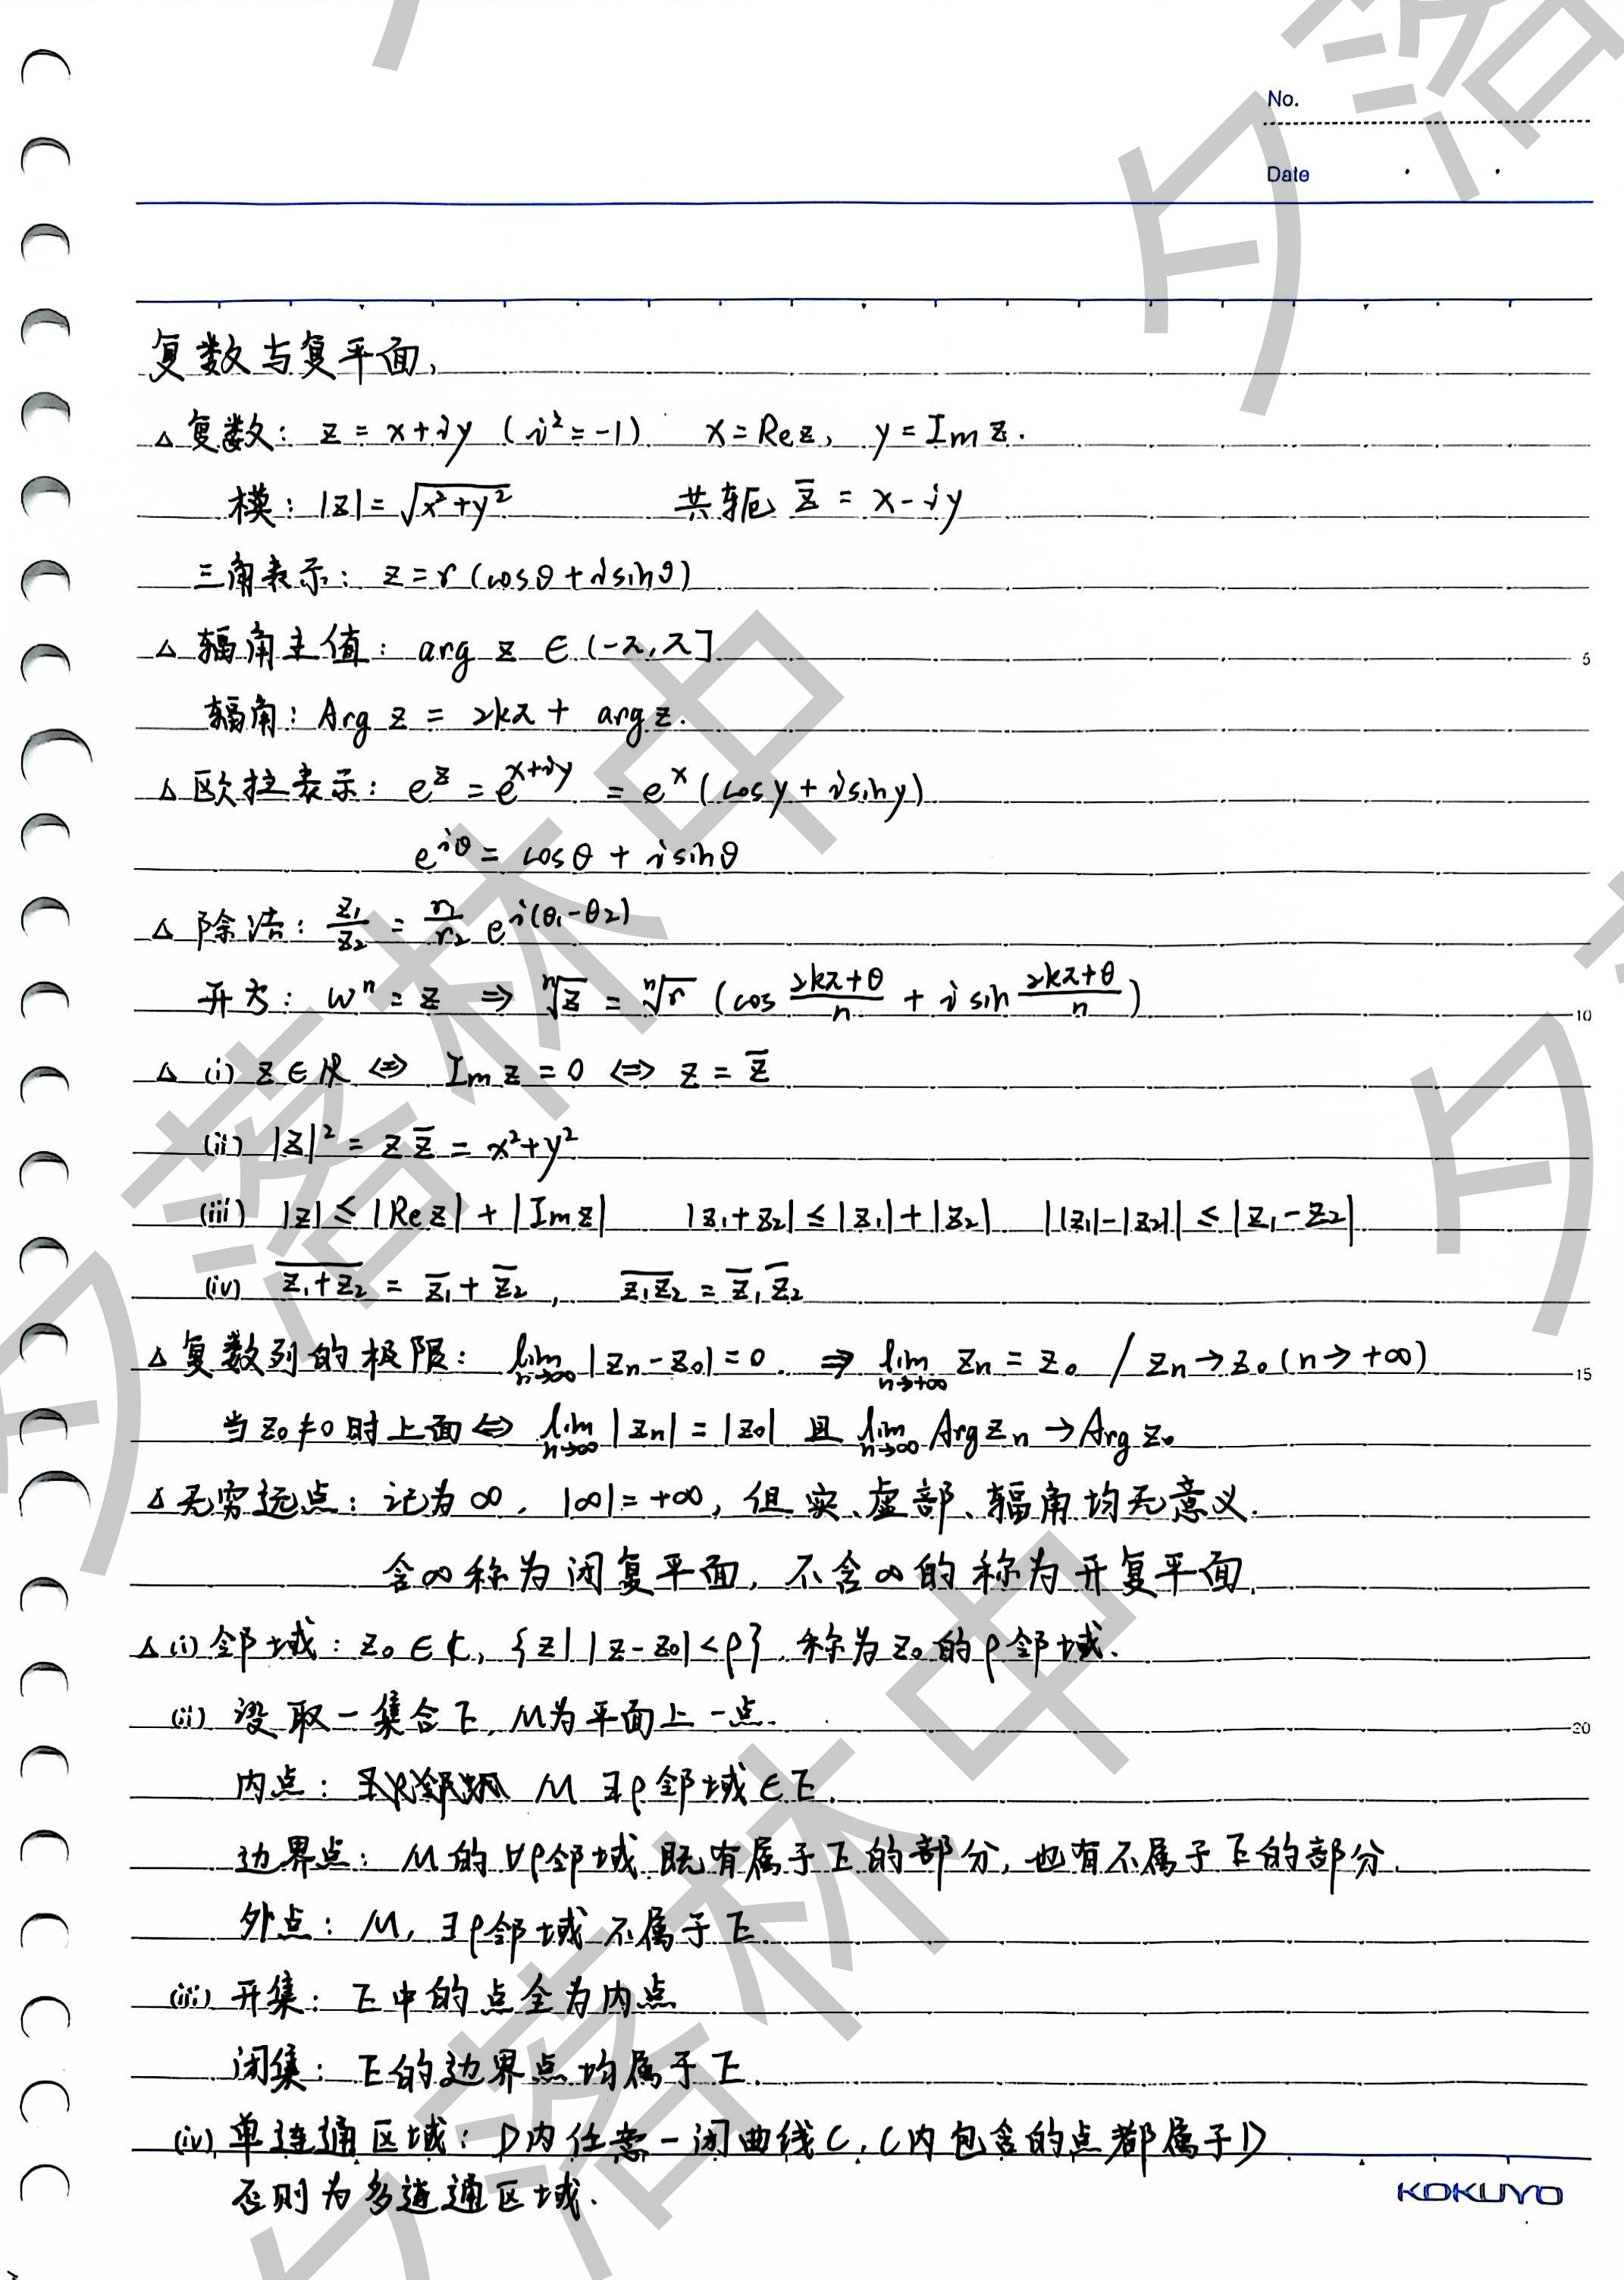 No.
Date
复数与复平面、
△ 复数: z = x+iy (i²=-1) x=Re z, y=Im z.
模: |z|=√(x²+y²) 共轭 z̅ = x-iy
三角表示: z=r(cosθ+isinθ)
△ 辐角主值: arg z ∈ (-π,π]
5
辐角: Arg z = 2kπ + arg z.
△ 欧拉表示: e^z = e^(x+iy) = e^x (cosy + isiny)
e^(iθ) = cosθ + isinθ
△ 除法: z₁/z₂ = r₁/r₂ e^(i(θ₁-θ₂))
开方: wⁿ = z ⇒ ⁿ√z = ⁿ√r (cos (2kπ+θ)/n + i sin (2kπ+θ)/n)
10
△ (i) z∈ℝ ⇔ Im z = 0 ⇔ z = z̅
(ii) |z|² = z z̅ = x²+y²
(iii) |z| ≤ |Re z| + |Im z| |z₁+z₂| ≤ |z₁|+|z₂| ||z₁|-|z₂|| ≤ |z₁-z₂|
(iv) \overline{z₁+z₂} = z̅₁ + z̅₂, \overline{z₁z₂} = z̅₁ z̅₂
△ 复数列的极限: lim_{n→∞} |zₙ-z₀|=0. ⇒ lim_{n→+∞} zₙ = z₀ / zₙ→z₀ (n→+∞)
15
当 z₀≠0 时上面 ⇔ lim_{n→∞} |zₙ| = |z₀| 且 lim_{n→∞} Arg zₙ → Arg z₀
△ 无穷远点: 记为 ∞, |∞|=+∞, 但实、虚部、辐角均无意义.
含∞称为闭复平面, 不含∞的称为开复平面.
△ (i) 邻域: z₀∈ℂ, {z| |z-z₀|<ρ}, 称为 z₀ 的ρ邻域.
(ii) 设取一集合E, M为平面上一点.
20
内点: M ∃ρ邻域∈E.
边界点: M的∀ρ邻域 既有属于E的部分, 也有不属于E的部分.
外点: M, ∃ρ邻域 不属于E.
(iii) 开集: E中的点全为内点
闭集: E的边界点均属于E.
(iv) 单连通区域: D内任意一闭曲线C, C内包含的点都属于D
否则为多连通区域.
KOKUYO
夕落林中
夕落林中
夕落
夕